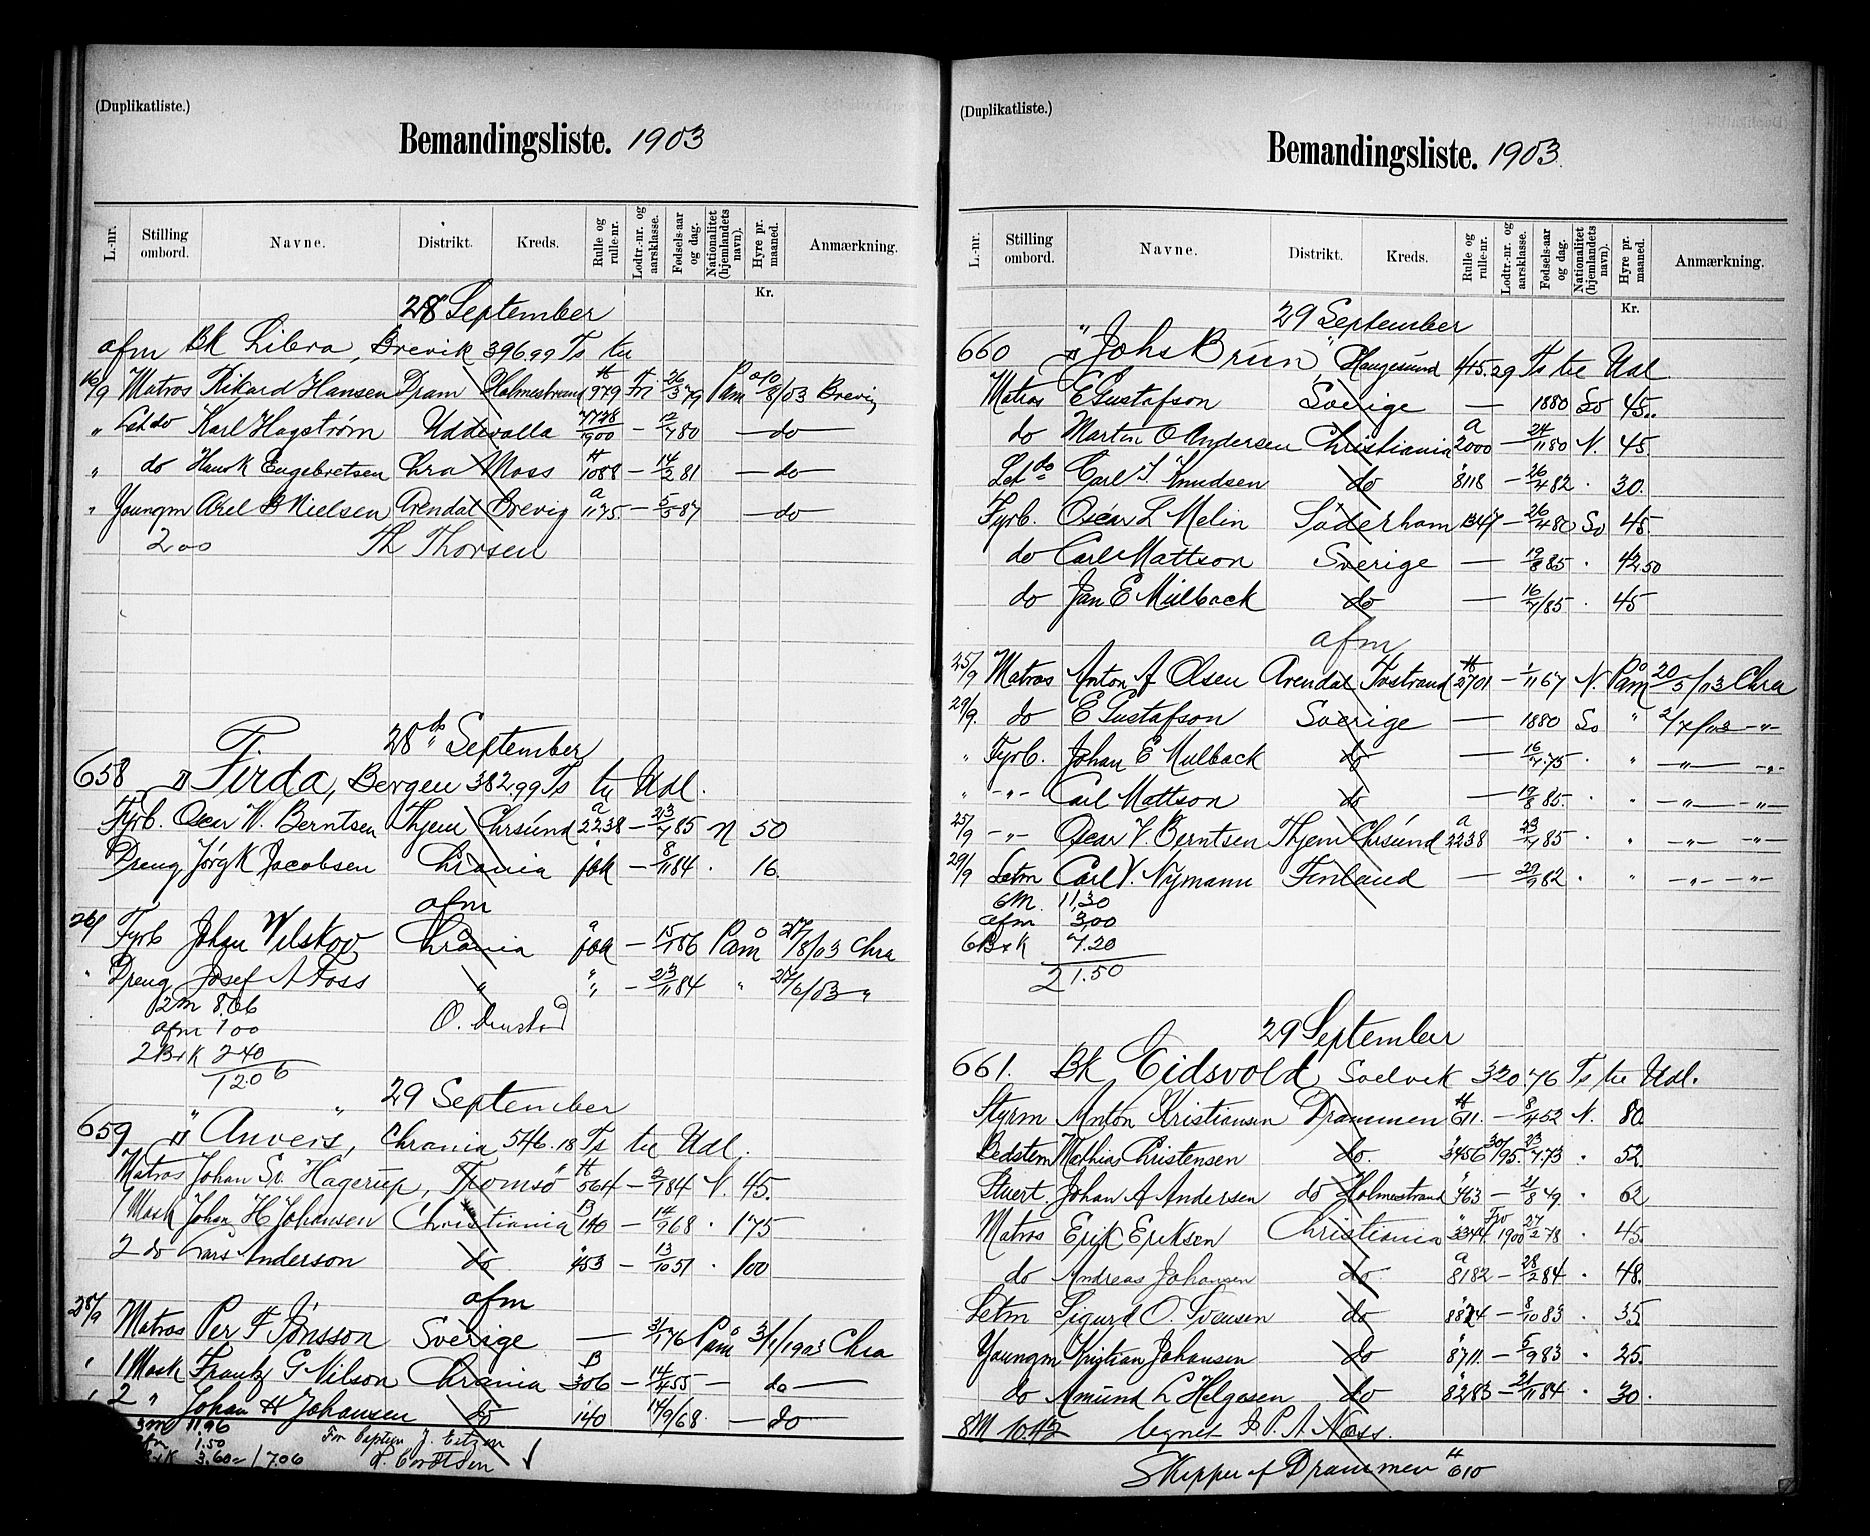 (Duplikatliste.)
Bemandingsliste. 1903
L.-nr. Stilling ombord. Navne. Distrikt. Kreds. Rulle og rulle-nr. Lodtr.-nr. og aarsklasse. Fødsels-aar og dag. Nationalitet (hjemlandets navn). Hyre pr. maaned. Anmærkning.
Kr.
28 September
afm Bk Libra, Brevik 396.99 Ts til
16/9 Matros Rikard Hansen Dram Holmestrand 979 26/3 79 Paam 8/03 Brevig
" Let do Karl Hagstrøm Uddevalla 7728/1900 — 12/7 80 — do —
" do Hans K Engebretsen Chra Moss 1088 — 14/2 81 — do —
" Youngm Axel B Nielsen Arendal Brevig a 1175. — 5/3 87 — do —
200 Th Thorsen
28 ds September
658 D Firda, Bergen 382.99 Ts til Udl.
Fyrb. Oscar W. Berntsen Thjem Chrsund a 2238 — 23/7 85 N 50
Dreng Jørg K Jacobsen Chrania — 8/11 84 . 16.
afm
Fyrb Johan Wilskov Chrania — 15/1 86 Paam 27/8/03 Chra
" Dreng Josef A Foss " " — 23/11 84 " /6/03 "
2m 8.06
afm 1 00
2 B+K 2 40
12.06
29 September
659 D "Anvers", Chrania 546.18 Ts til Udl.
Matros Johan Sv. Hagerup, Tromsø 564 — 2/7 84 N. 45.
1 Mask Johan H Johansen Christiania B 140 — 14/9 68 . 175
2 do Lars Anderson do 453 — 13/10 51 . 100
afm
28/9 Matros Per F Jönsson Sverige — 3/1 76 Paam 3/1/1903 Chra
" 1 Mask Frantz G Nilson Chrania B 306 — 14/4 55 — do —
" 2 " Johan H Johansen do 140 14/9/68 . — do —
3m 11.96
afm 1.50
3.60 = 17.06
For Captein J.
(Duplikatliste.)
Bemandingsliste. 1903.
L.-nr. Stilling ombord. Navne. Distrikt. Kreds. Rulle og rulle-nr. Lodtr.-nr. og aarsklasse. Fødsels-aar og dag. Nationalitet (hjemlandets navn). Hyre pr. maaned. Anmærkning.
Kr.
29 September
660 D "Johs Brun", Haugesund 745.29 Ts til Udl
Matros E Gustafson Sverige — 1880 Sv 45..
do Martin O Andersen Christiania a 2000 — 24/11 80 N. 45.
Let do Carl J. Knudsen do 8118 — 26/4 82 . 30.
Fyrb. Oscar L Melin Söderham 1347 — 26/4 80 Sv 45.
do Carl Mattson Sverige — 19/8 85 . 42.50
do Jan E Mülback do — 16/7/85 . 45
afm
25/9 Matros Anton A Olsen Arendal Tvstrand 2701 — 1/11 67 N. Paam 20/5/03 Chra
29/9. do E Gustafson Sverige — 1880 Sv " 2/7/03 — " —
" Fyrb. Johan E Mulback do — 16/7 75 . " — " — — " —
" — " — Carl Mattson do — 19/8 85. . " — " — — " —
25/9 — " — Oscar V. Berntsen Thjem Chrsund a 2238 23/7 85 . " — " — — " —
29/9 Letm Carl V. Nymann Finland — 29/9 82 . " — " — — " —
6M. 11,30
afm 3,00
6B+K 7.20
21.50
29 September
661. Bk Eidsvold, Svelvik 320.76 Ts til Udl.
Styrm Anton Kristiansen Drammen 611. — 8/4 52 N. 80.
Bedstem Mathias Christensen do. 3456 30/95. 23/7 73 . 52.
Stuert. Johan A Andersen do Holmestrand 763 — 21/8 49 . 62
Matros Erik Eriksen Christiania 3344 1900 27/2 78 . 45.
do Andreas Johansen do a 8182 — 28/2 84 . 48.
Letm Sigurd O. Svensen do 8824 — 8/10 83 . 35
Youngm Kristian Johansen do 8711. — 5/9 83 . 25.
do Amund L Helgesen do 8283 — 21/11 84 . 30.
8M 10.42 tegnet P. A Næss.
Skipper af Drammen 610